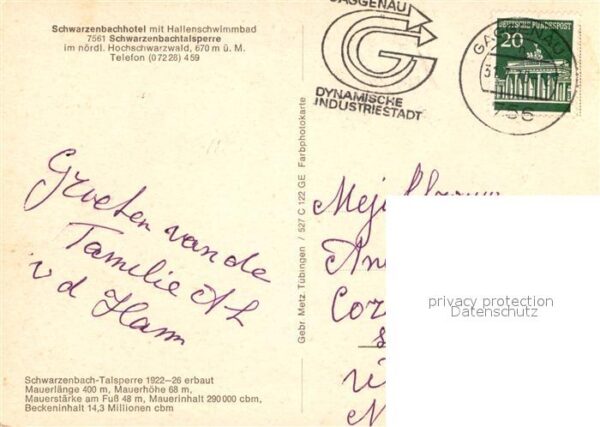 Schwarzenbachhotel mit Hallenschwimmbad
7561 Schwarzenbachtalsperre
im nördl. Hochschwarzwald, 670 m ü. M.
Telefon (07228) 459
GAGGENAU
G
DYNAMISCHE
INDUSTRIESTADT
DEUTSCHE BUNDESPOST
20
Groeten van de
Familie A L
v d Ham
Gebr. Metz, Tübingen / 527 C 122 GE Farbphotokarte
Schwarzenbach-Talsperre 1922–26 erbaut
Mauerlänge 400 m, Mauerhöhe 68 m,
Mauerstärke am Fuß 48 m, Mauerinhalt 290000 cbm,
Beckeninhalt 14,3 Millionen cbm
privacy protection
Datenschutz